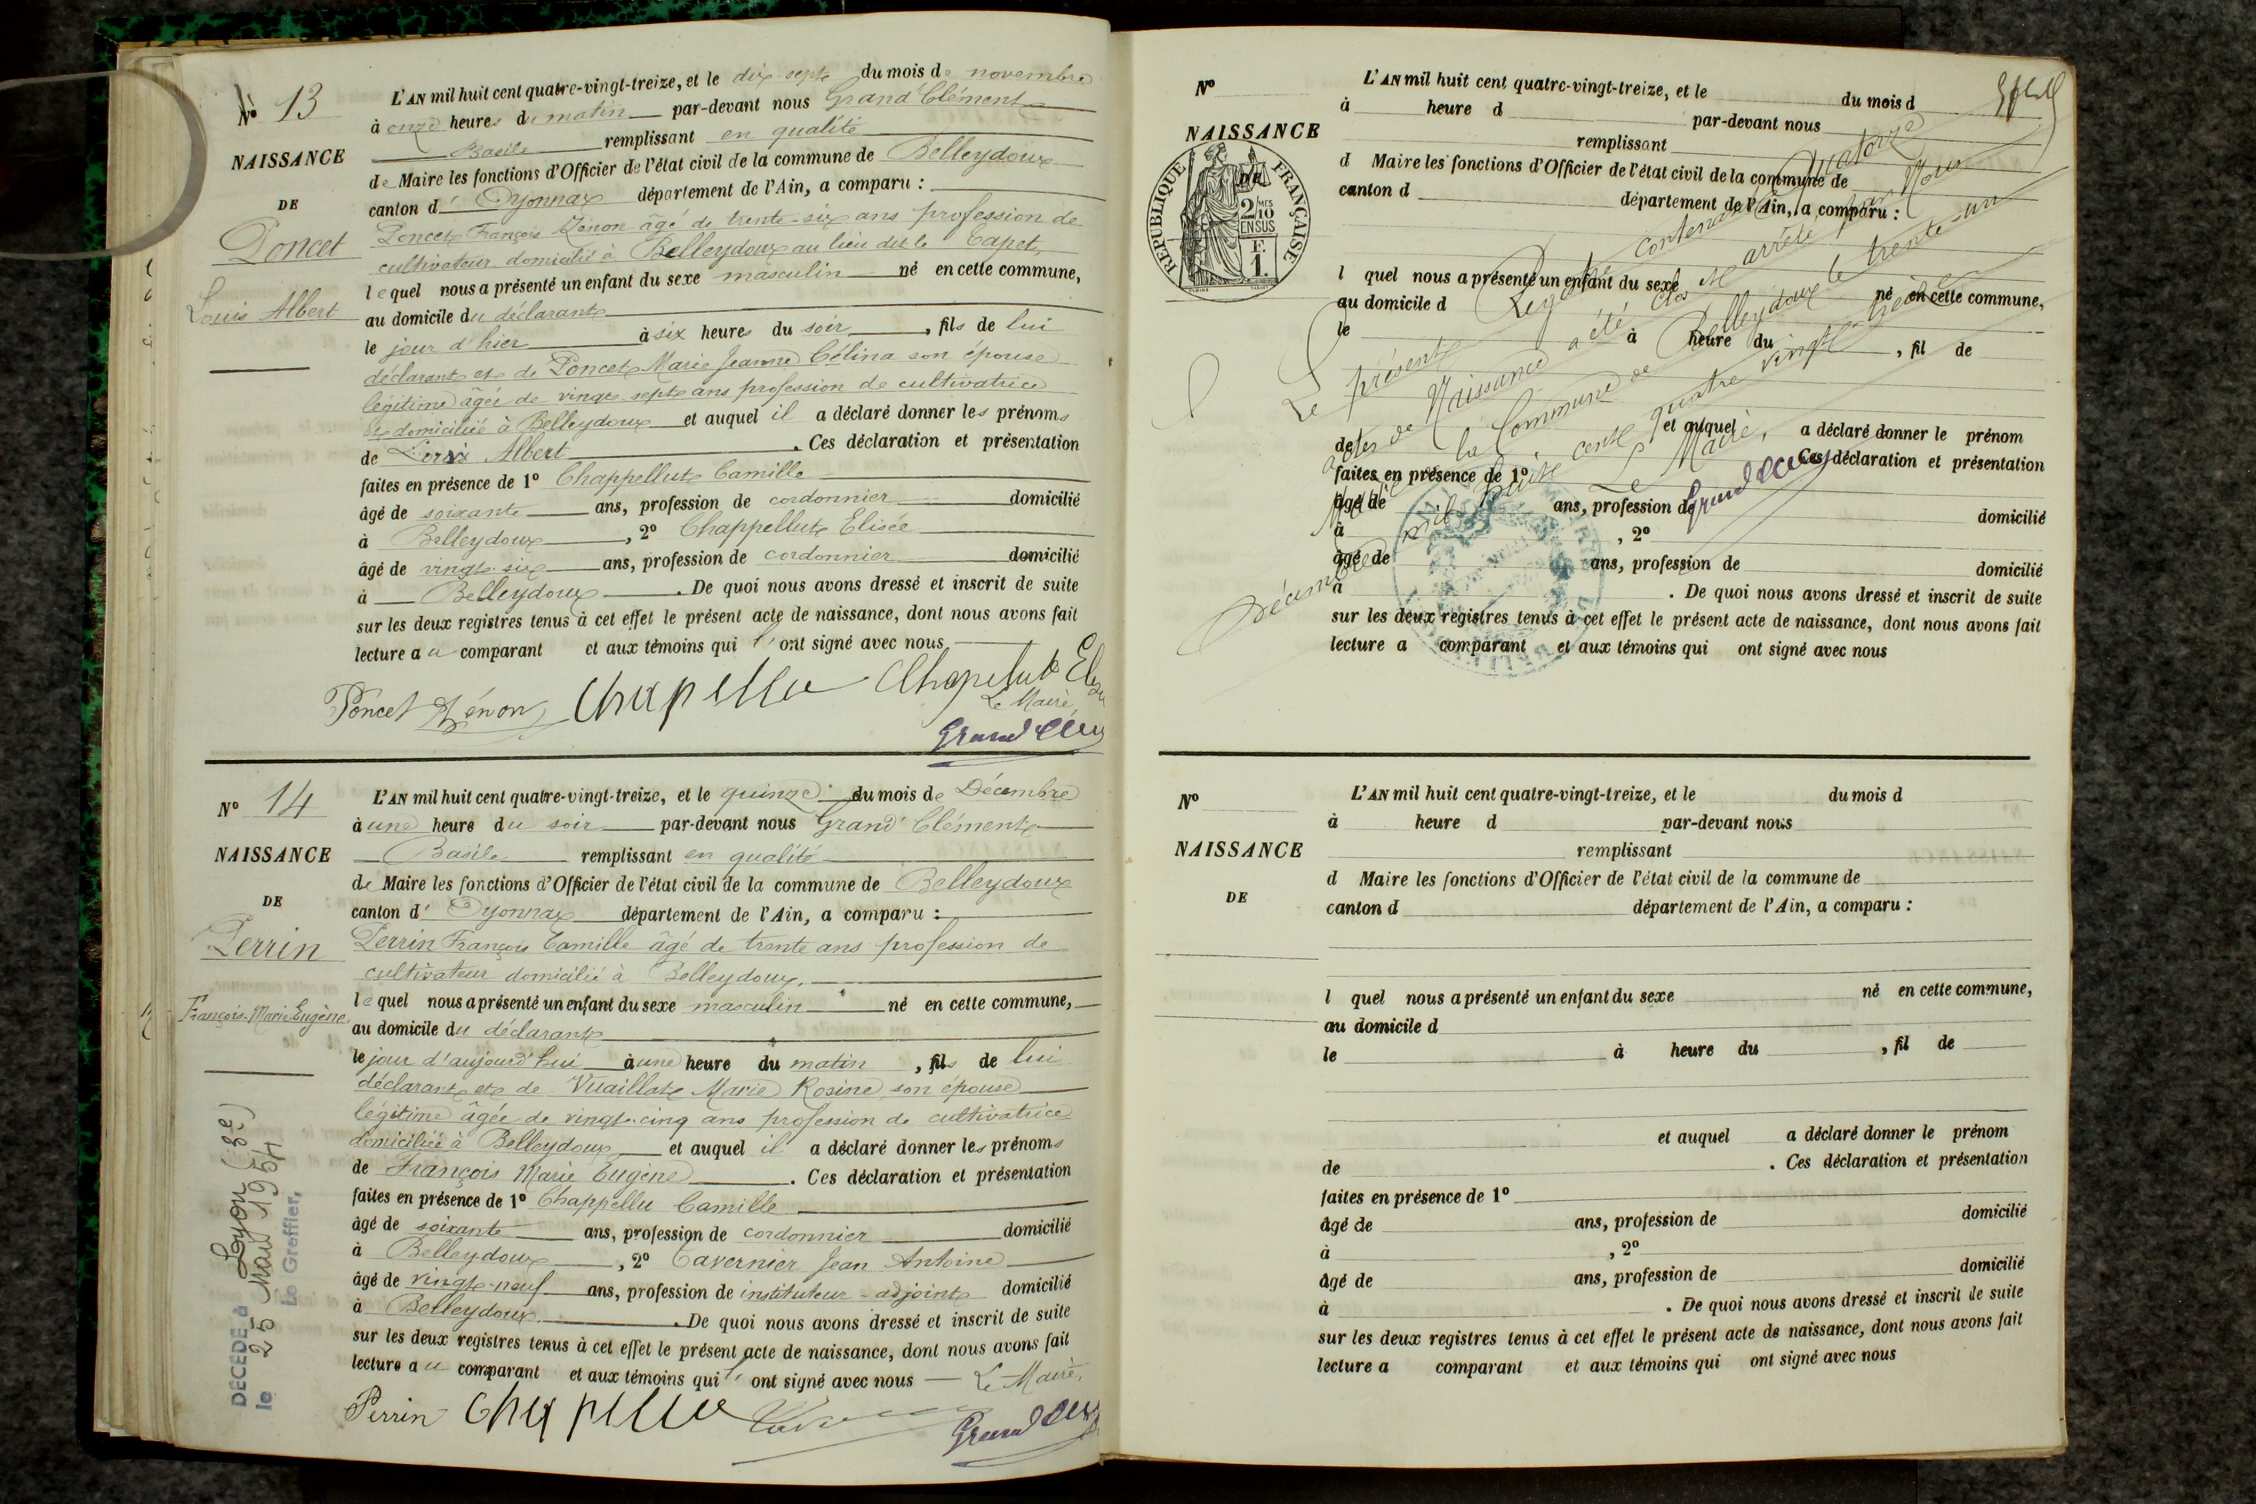 N° 13
NAISSANCE
DE
Poncet
Louis Albert
L'AN mil huit cent quatre-vingt-treize, et le dix-sept du mois de novembre
à onze heures du matin par-devant nous Grand Clément
Basile remplissant en qualité
de Maire les fonctions d'Officier de l'état civil de la commune de Belleydoux
canton d'Oyonnax département de l'Ain, a comparu :
Poncet François Zénon âgé de trente-six ans profession de
cultivateur domicilié à Belleydoux au lieu dit le Tapet,
lequel nous a présenté un enfant du sexe masculin né en cette commune,
au domicile du déclarant
le jour d'hier à six heures du soir, fils de lui
déclarant et de Poncet Marie Jeanne Célina son épouse
légitime âgée de vingt sept ans profession de cultivatrice
et domiciliée à Belleydoux et auquel il a déclaré donner les prénoms
de Louis Albert. Ces déclaration et présentation
faites en présence de 1° Chappellut Camille
âgé de soixante ans, profession de cordonnier domicilié
à Belleydoux, 2° Chappellut Elisée
âgé de vingt-six ans, profession de cordonnier domicilié
à Belleydoux. De quoi nous avons dressé et inscrit de suite
sur les deux registres tenus à cet effet le présent acte de naissance, dont nous avons fait
lecture au comparant et aux témoins qui l'ont signé avec nous
Poncet Zénon Chapellu Chapelut
Le Maire,
Grand Clém
N° 14
NAISSANCE
DE
Perrin
François-Marie Eugène
DÉCÉDÉ à Lyon (3e)
le 25 Mai 1954
Le Greffier,
L'AN mil huit cent quatre-vingt-treize, et le quinze du mois de Décembre
à une heure du soir par-devant nous Grand Clément
Basile remplissant en qualité
de Maire les fonctions d'Officier de l'état civil de la commune de Belleydoux
canton d'Oyonnax département de l'Ain, a comparu :
Perrin François Camille âgé de trente ans profession de
cultivateur domicilié à Belleydoux,
lequel nous a présenté un enfant du sexe masculin né en cette commune,
au domicile du déclarant
le jour d'aujourd'hui à une heure du matin, fils de lui
déclarant et de Vuaillat Marie Rosine son épouse
légitime âgée de vingt-cinq ans profession de cultivatrice
domiciliée à Belleydoux et auquel il a déclaré donner les prénoms
de François Marie Eugène. Ces déclaration et présentation
faites en présence de 1° Chappellu Camille
âgé de soixante ans, profession de cordonnier domicilié
à Belleydoux, 2° Tavernier Jean Antoine
âgé de vingt-neuf ans, profession de instituteur-adjoint domicilié
à Belleydoux. De quoi nous avons dressé et inscrit de suite
sur les deux registres tenus à cet effet le présent acte de naissance, dont nous avons fait
lecture au comparant et aux témoins qui l'ont signé avec nous Le Maire,
Perrin Chapellu Grand Clém
N°
NAISSANCE
DE
RÉPUBLIQUE FRANÇAISE
2/10 MES
EN SUS
F.
1.
L'AN mil huit cent quatre-vingt-treize, et le du mois d
à heure d par-devant nous
remplissant
d Maire les fonctions d'Officier de l'état civil de la commune de
canton d département de l'Ain, a comparu :
l quel nous a présenté un enfant du sexe né en cette commune,
au domicile d
le à heure du , fil de
et auquel a déclaré donner le prénom
de Ces déclaration et présentation
faites en présence de 1°
âgé de ans, profession de domicilié
à , 2°
âgé de ans, profession de domicilié
à . De quoi nous avons dressé et inscrit de suite
sur les deux registres tenus à cet effet le présent acte de naissance, dont nous avons fait
lecture a comparant et aux témoins qui ont signé avec nous
Le présent Registre contenant Quatorze
actes de Naissance a été clos et arrêté par Nous
Maire de la Commune de Belleydoux le trente-un
Décembre mil huit cent quatre vingt-treize
Le Maire,
Grand Clém
N°
NAISSANCE
DE
L'AN mil huit cent quatre-vingt-treize, et le du mois d
à heure d par-devant nous
remplissant
d Maire les fonctions d'Officier de l'état civil de la commune de
canton d département de l'Ain, a comparu :
l quel nous a présenté un enfant du sexe né en cette commune,
au domicile d
le à heure du , fil de
et auquel a déclaré donner le prénom
de . Ces déclaration et présentation
faites en présence de 1°
âgé de ans, profession de domicilié
à , 2°
âgé de ans, profession de domicilié
à . De quoi nous avons dressé et inscrit de suite
sur les deux registres tenus à cet effet le présent acte de naissance, dont nous avons fait
lecture a comparant et aux témoins qui ont signé avec nous